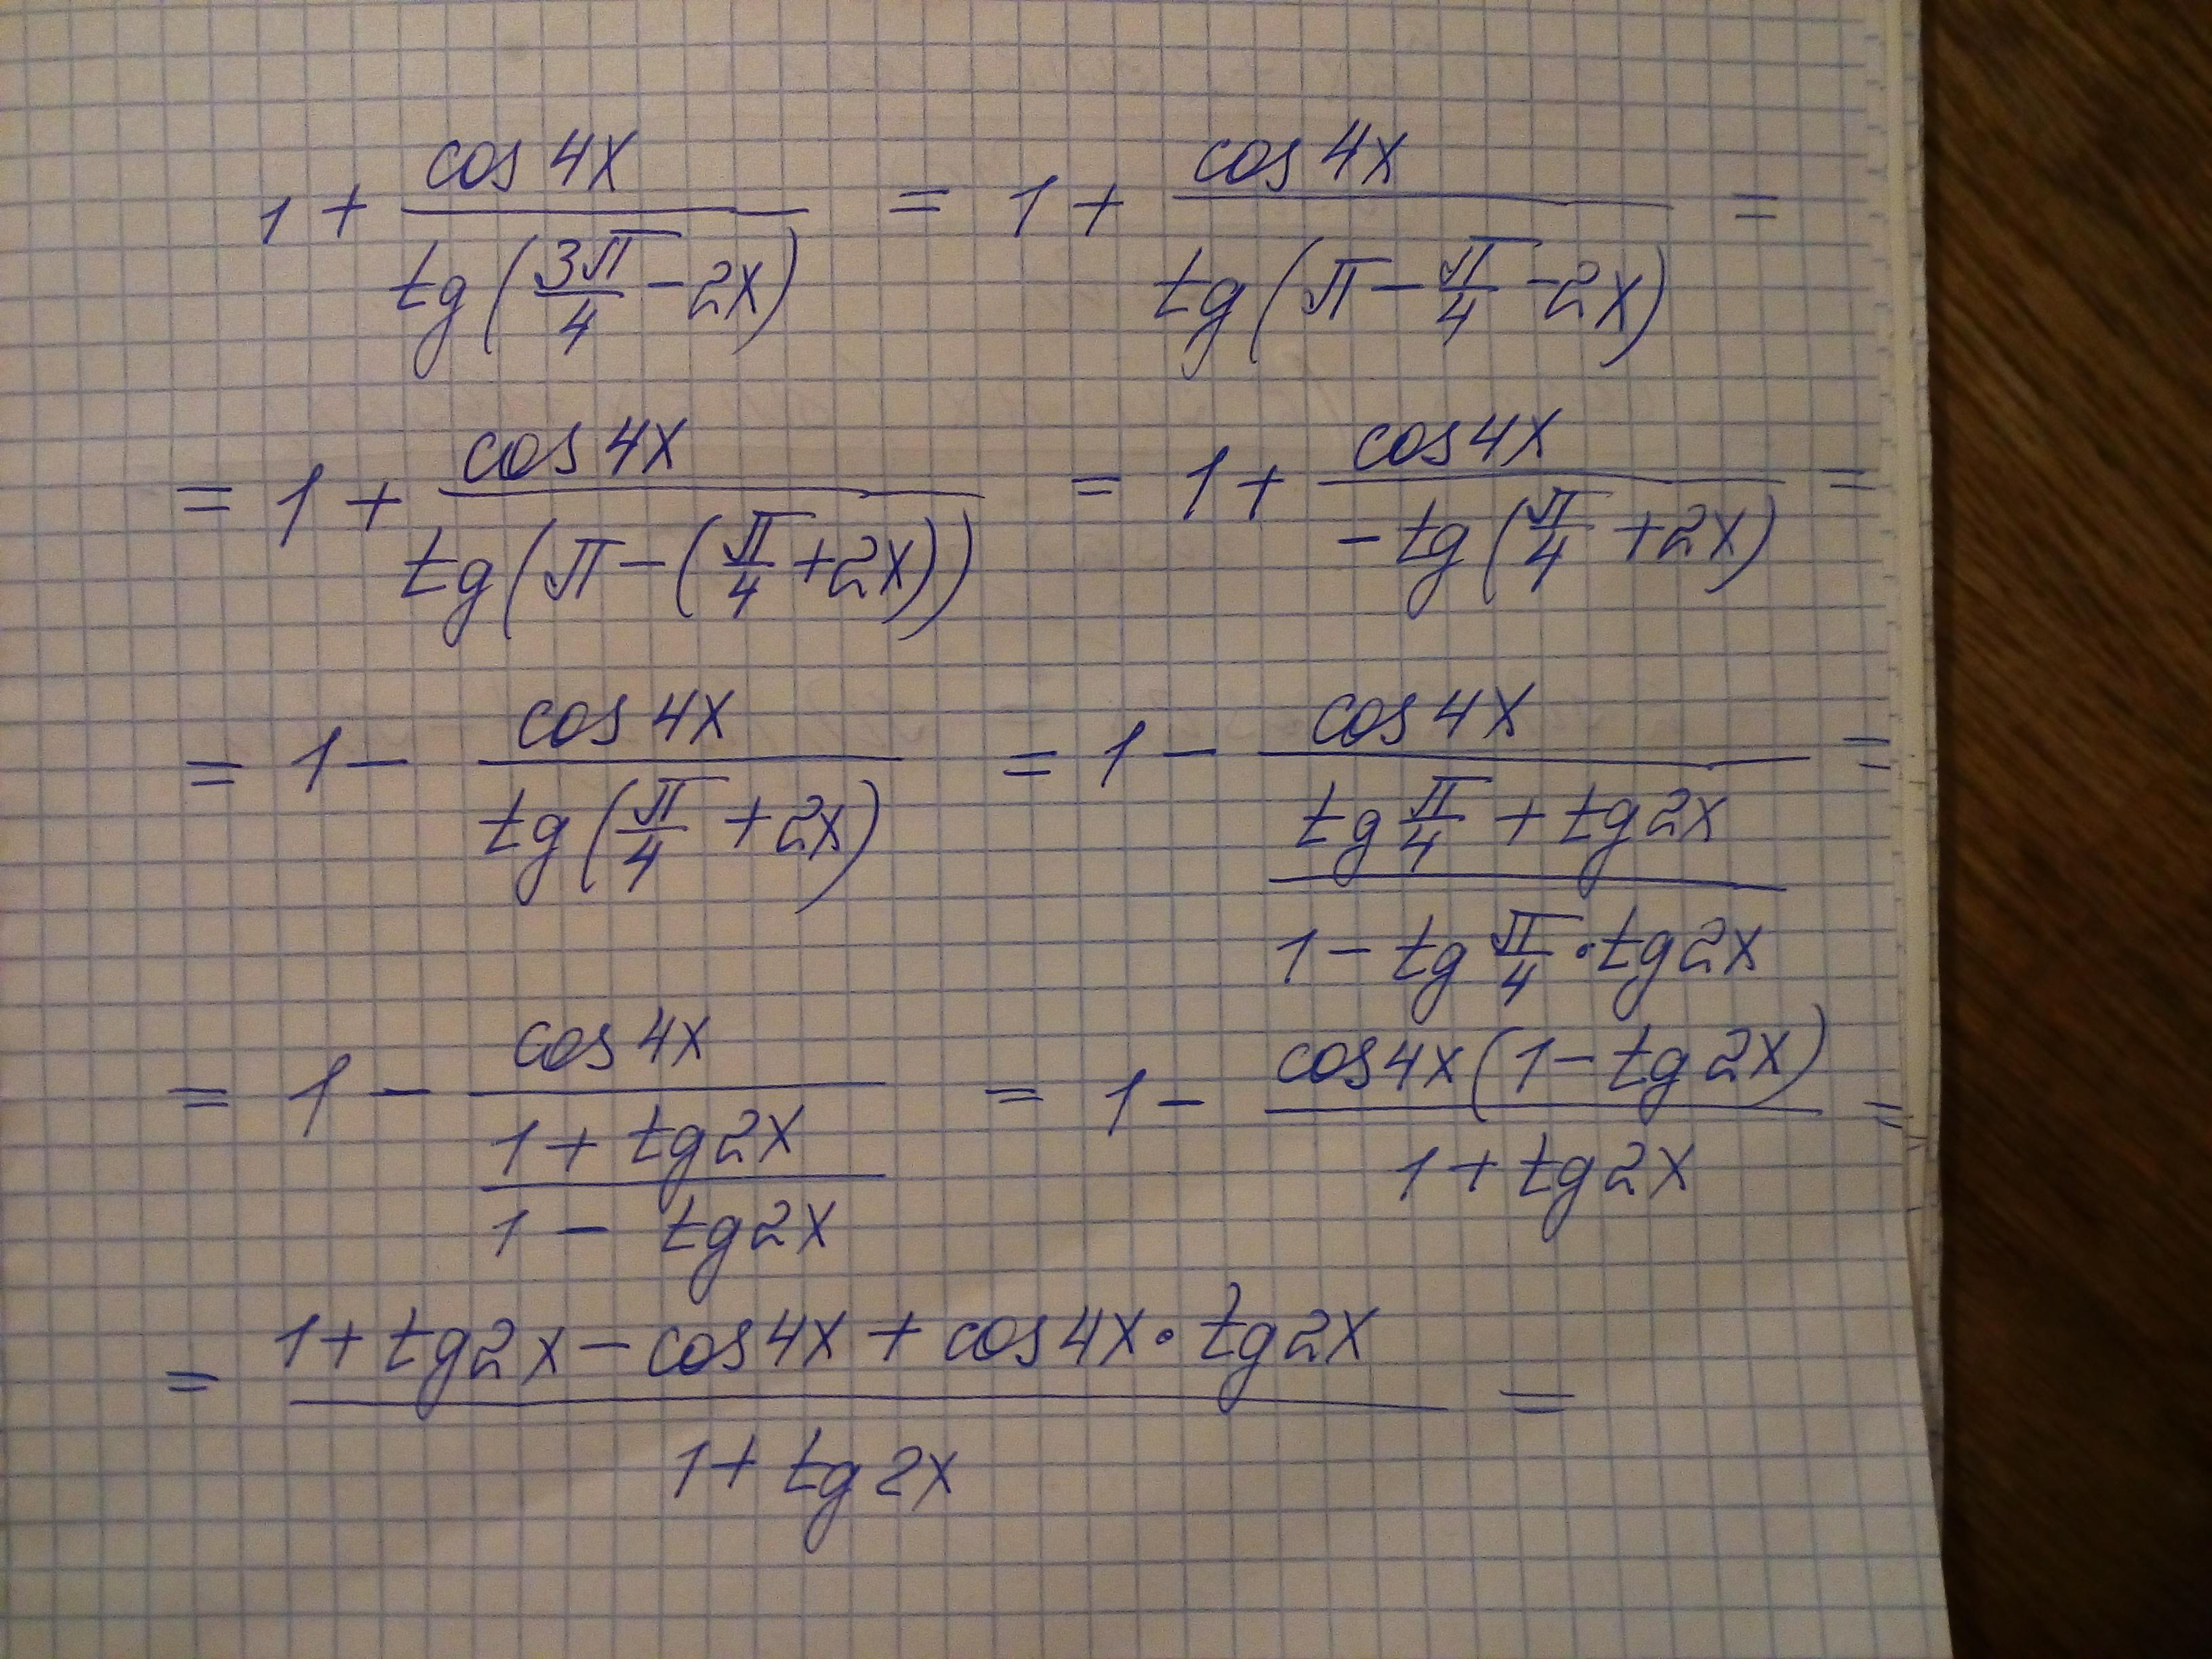 1 + cos 4x / tg(3π/4 - 2x) = 1 + cos 4x / tg(π - π/4 - 2x) =
= 1 + cos 4x / tg(π - (π/4 + 2x)) = 1 + cos 4x / -tg(π/4 + 2x) =
= 1 - cos 4x / tg(π/4 + 2x) = 1 - cos 4x / ((tg π/4 + tg 2x) / (1 - tg π/4 · tg 2x)) =
= 1 - cos 4x / ((1 + tg 2x) / (1 - tg 2x)) = 1 - cos 4x (1 - tg 2x) / (1 + tg 2x) =
= (1 + tg 2x - cos 4x + cos 4x · tg 2x) / (1 + tg 2x) =